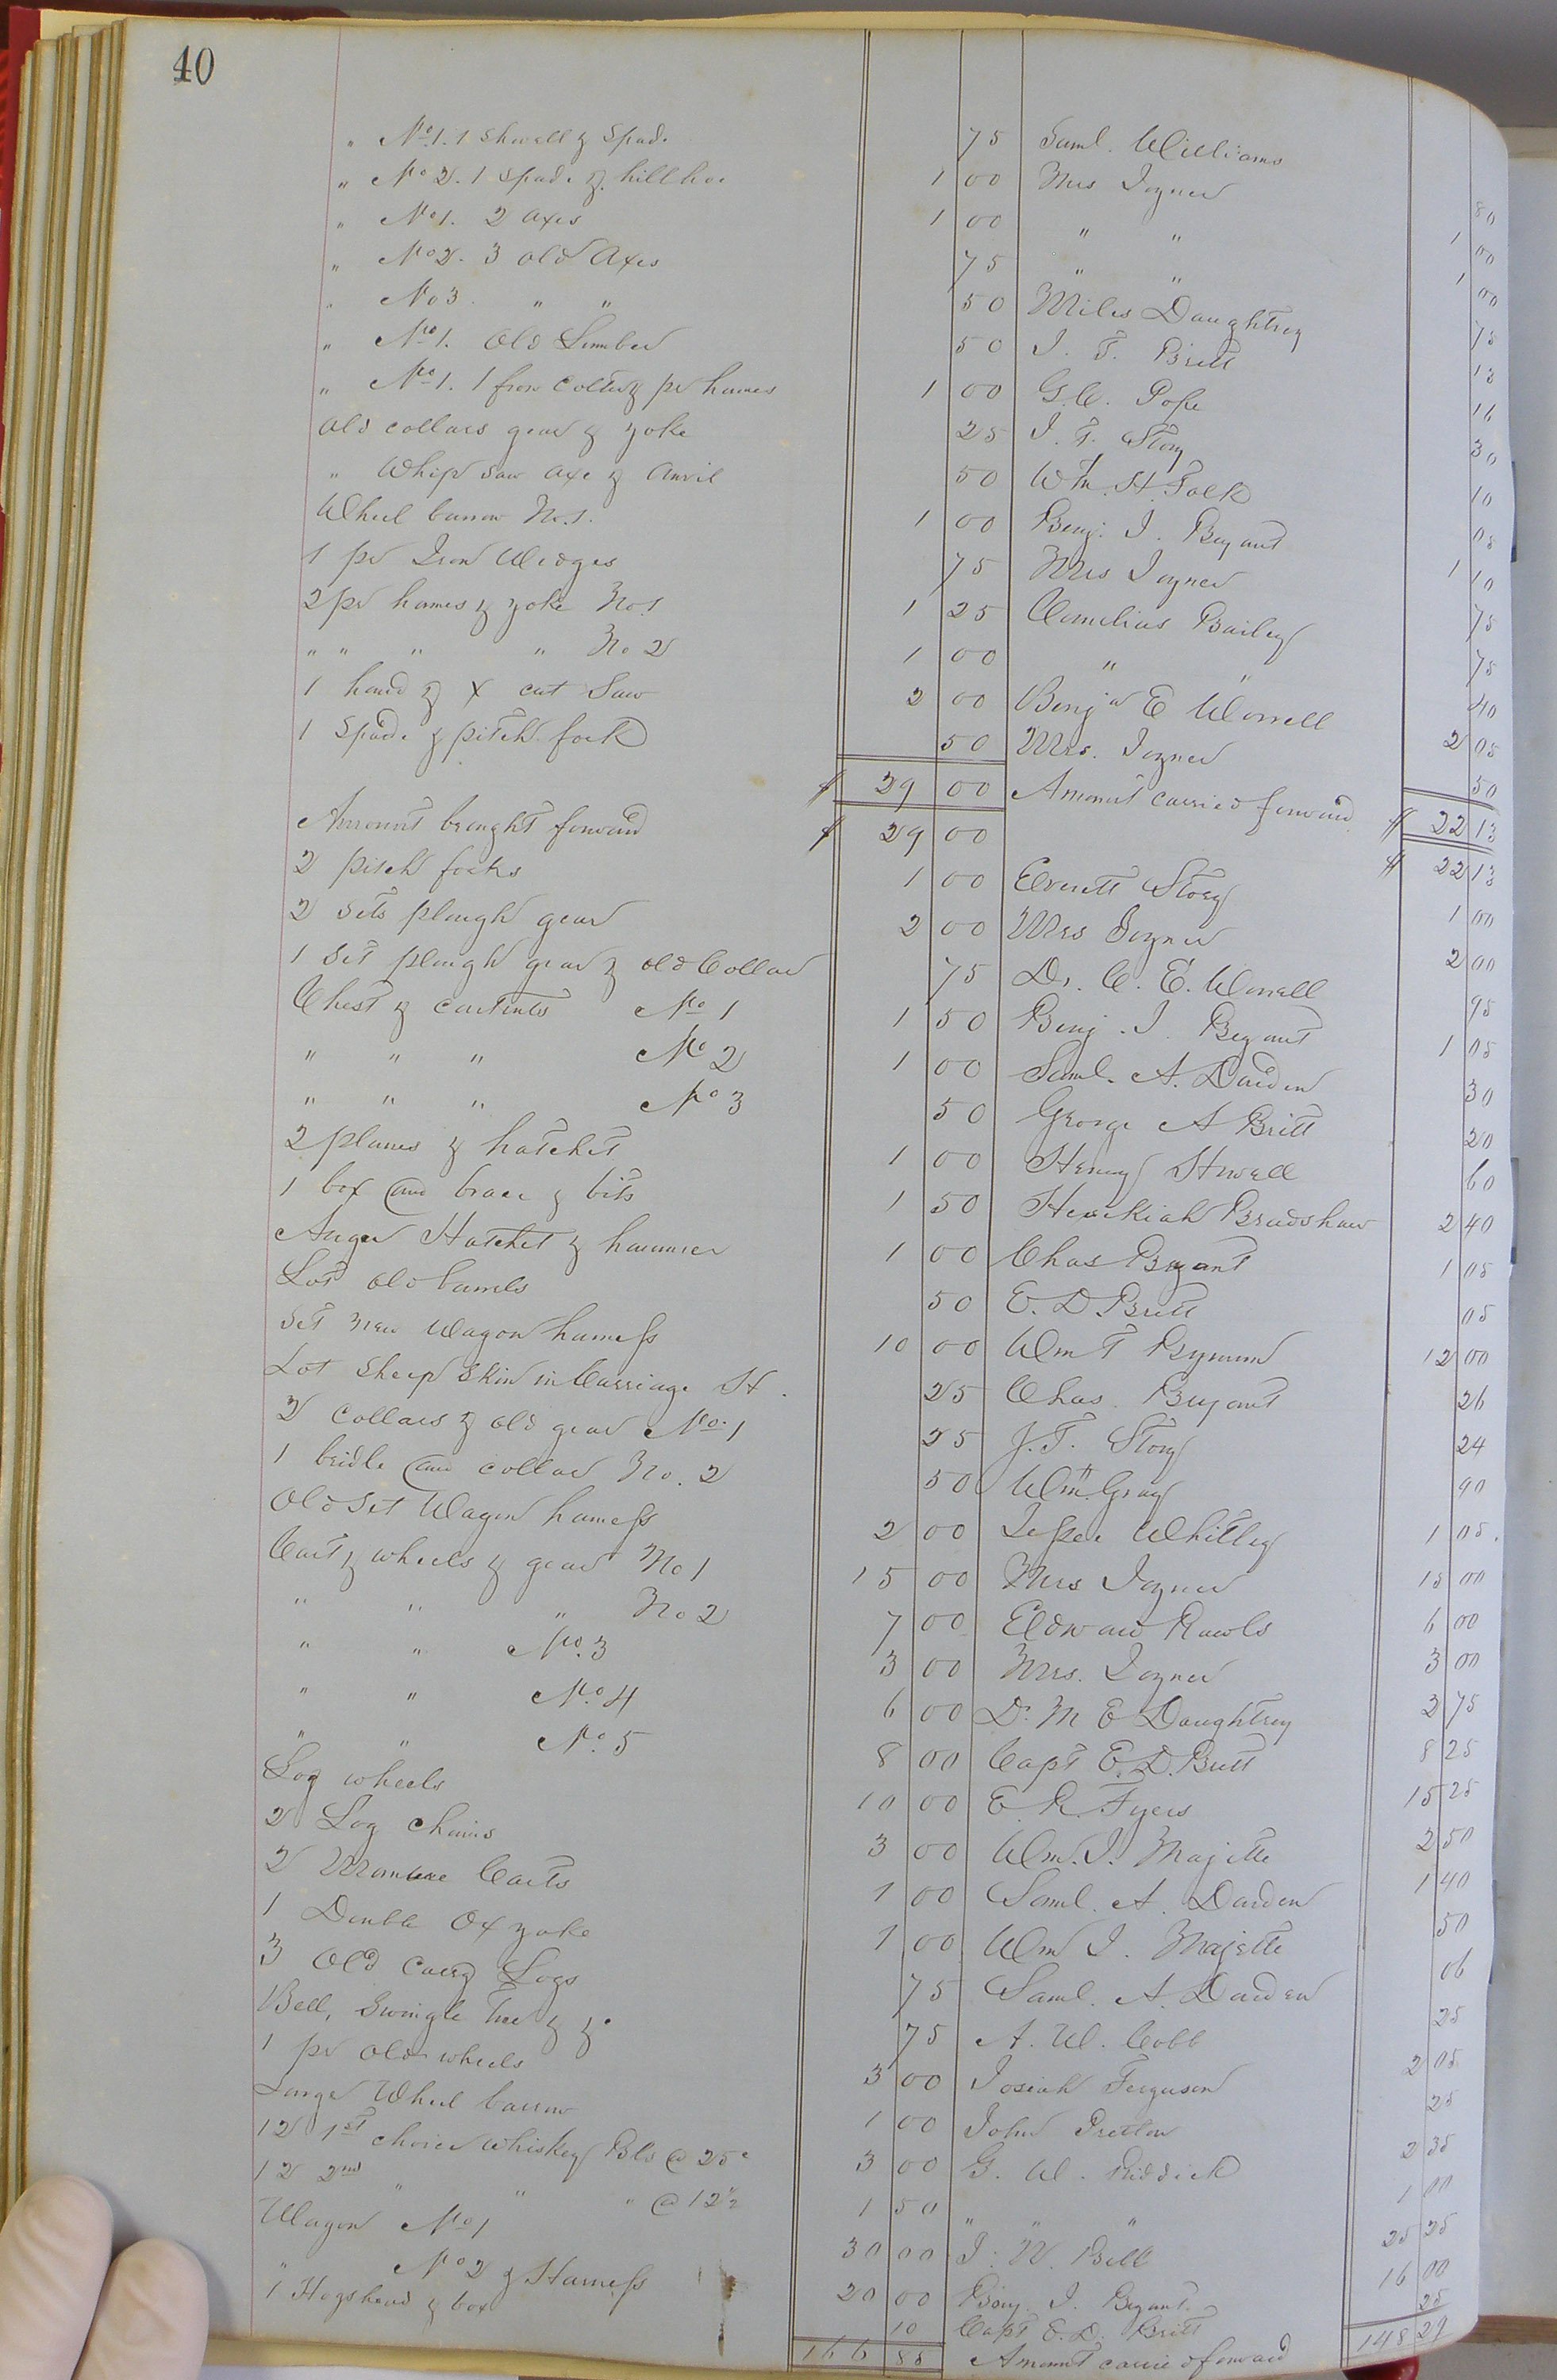 40
" No. 1. 1 Shovell & Spade 75 Saml. Williams 80
" No 2. 1 Spade & hillhoe 1 00 Mrs Joyner 1 00
" No 1. 2 axes 1 00 " " 1 00
" No 2. 3 old Axes 75 " " 75
" No 3 " " 50 Miles Daughtrey 13
" No 1. Old Lumber 50 J. T. Britt 16
" No 1. 1 iron Colter & pr hames 1 00 G. C. Pope 30
Old collars gear & yoke 25 J. T. Story 10
" Whip Saw axe & Anvil 50 Wm. H. Folk 05
Wheel barrow No. 1. 1 00 Benj. J. Bryant 1 10
1 pr Iron Wedges 75 Mrs Joyner 75
2 pr hames & yoke No 1 1 25 Cornelius Bailey 75
" " " " No 2 1 00 " " 40
1 hand & X cut Saw 2 00 Benja E Worrell 2 05
1 Spade & pitch fork 50 Mrs. Joyner 50
$ 29 00 Amount carried forward $ 22 13
Amount brought forward $ 29 00 $ 22 13
2 pitch forks 1 00 Everett Story 1 00
2 Sets plough gear 2 00 Mrs Joyner 2 00
1 Set plough gear & old Collar 75 Dr. C. E. Worrell 95
Chest & contents No 1 1 50 Benj. J. Bryant 1 05
" " " No 2 1 00 Saml. A. Darden 30
" " " No 3 50 George A Britt 20
2 planes & hatchet 1 00 Henry Howell 60
1 box and brace & bits 1 50 Hezekiah Bradshaw 2 40
Auger Hatchet & hammer 1 00 Chas Bryant 1 05
Lot old barrels 50 E. D Britt 05
Set new Wagon harness 10 00 Wm T Bynum 12 00
Lot Sheep Skin in Carriage H. 25 Chas. Bryant 26
2 Collars & old gear No. 1 25 J. T. Story 24
1 bridle and collar No. 2 50 Wm. Gray 90
Old Set Wagon harness 2 00 Jesse Whitley 1 05.
Cart & wheels & gear No 1 15 00 Mrs Joyner 15 00
" " " No 2 7 00 Edward Rawls 6 00
" " No. 3 3 00 Mrs. Joyner 3 00
" " No. 4 6 00 Dr. M E Daughtrey 3 75
" " No. 5 8 00 Capt E. D. Britt 8 25
Log wheels 10 00 E R. Fyers 15 25
2 Log Chains 3 00 Wm. J. Majette 2 50
2 Manure Carts 1 00 Saml. A. Darden 1 40
1 Double Ox yoke 1 00 Wm J. Majette 50
3 Old Carry Logs 75 Saml. A. Darden 06
Bell, Swingle Tree & &c 75 A. W. Cobb 25
1 pr old wheels 3 00 Josiah Ferguson 2 05
Large Wheel barrow 1 00 John Pretlow 25
12 1st choice whiskey Bls @ 25c 3 00 G. W. Riddick 2 35
12 2nd " " " @ 12½ 1 50 " " " 1 00
Wagon No 1 30 00 J. W. Bell 25 25
" No 2 & Harness 20 00 Benj. J. Bryant 16 00
1 Hogshead & box 10 Capt E. D. Britt 25
166 85 Amount carried forward 148 29